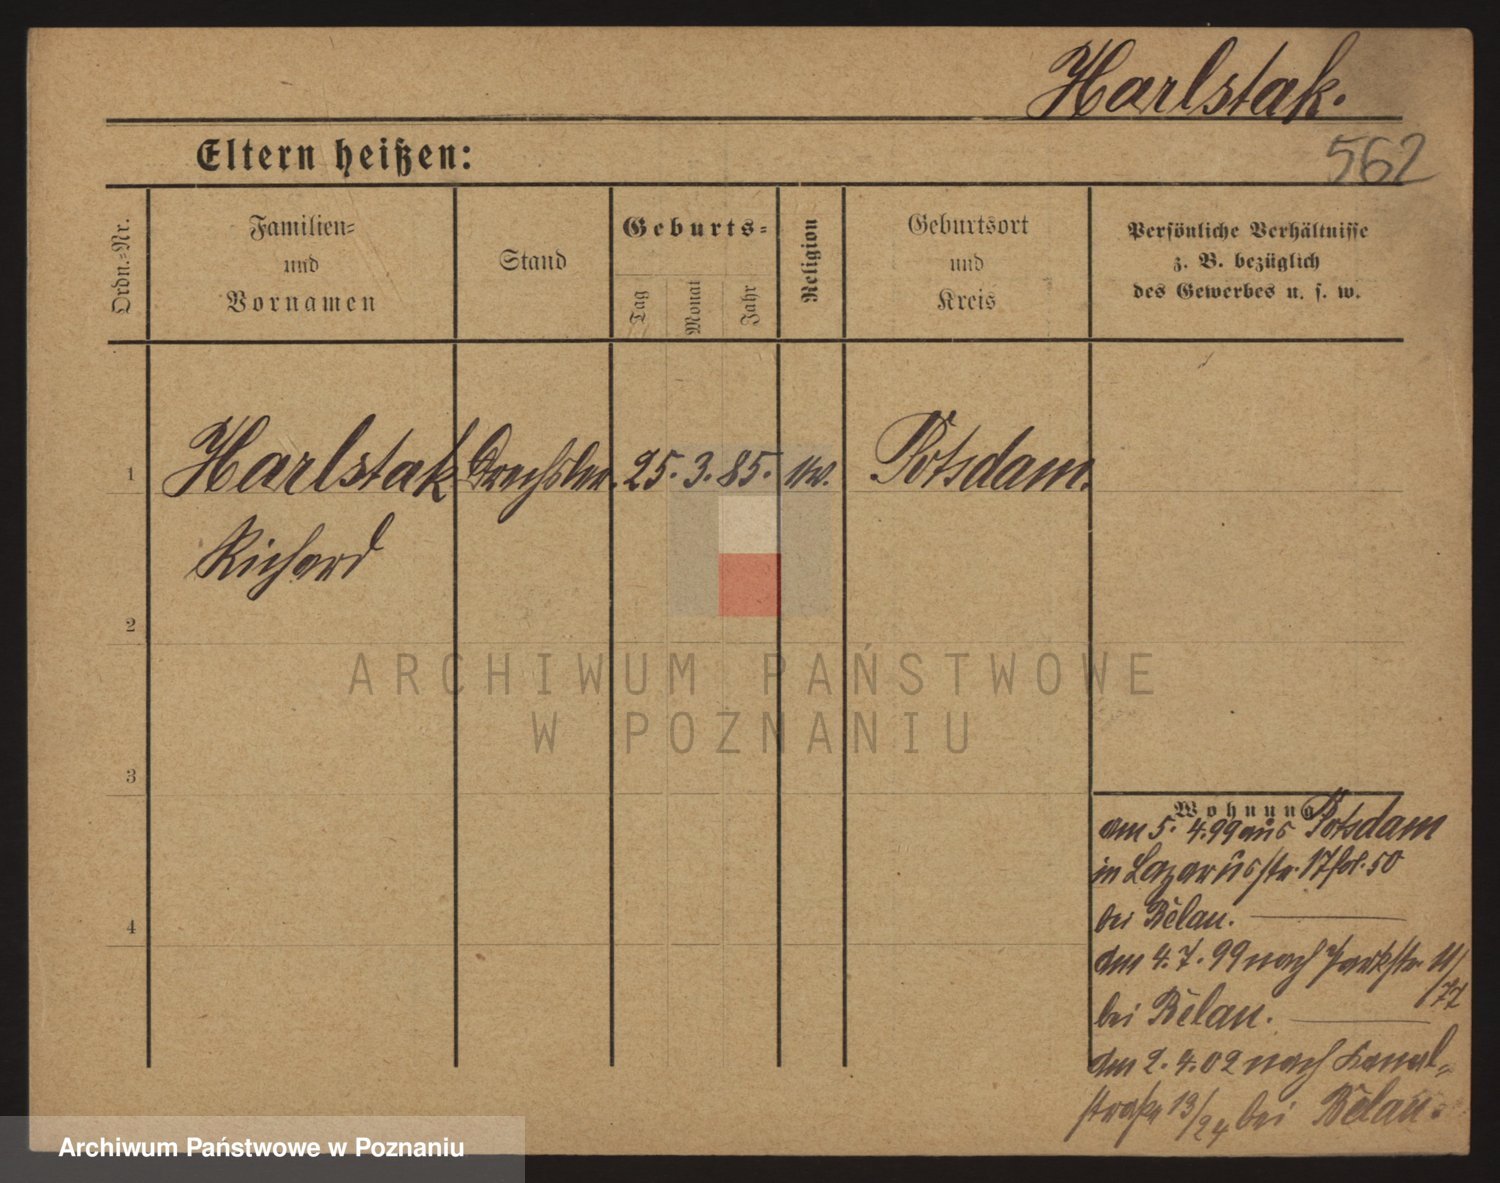 Harlstak.
562
Eltern heißen:
Ordn.-Nr.
Familien-
und
Vornamen
Stand
Geburts-
Tag
Monat
Jahr
Religion
Geburtsort
und
Kreis
Persönliche Verhältnisse
z. B. bezüglich
des Gewerbes u. s. w.
1 Harlstak Drechsler. 25. 3. 85. Potsdam.
Richard
2
3
4
ARCHIWUM PAŃSTWOWE
W POZNANIU
Wohnung
am 5. 4. 99 aus Potsdam
in Lazarusstr. 17 fol. 50
bei Bělau.
am 4. 7. 99 nach Parkstr. 11/
77
bei Bělau.
am 2. 4. 02 nach Kanal-
straße 13/24 bei Bělau.
Archiwum Państwowe w Poznaniu